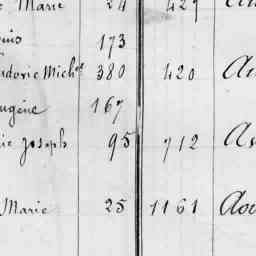 Marie 24 427
173
Ludovic Mich^el 380 420
Eugène 167
Joseph 95 712
Marie 25 1161